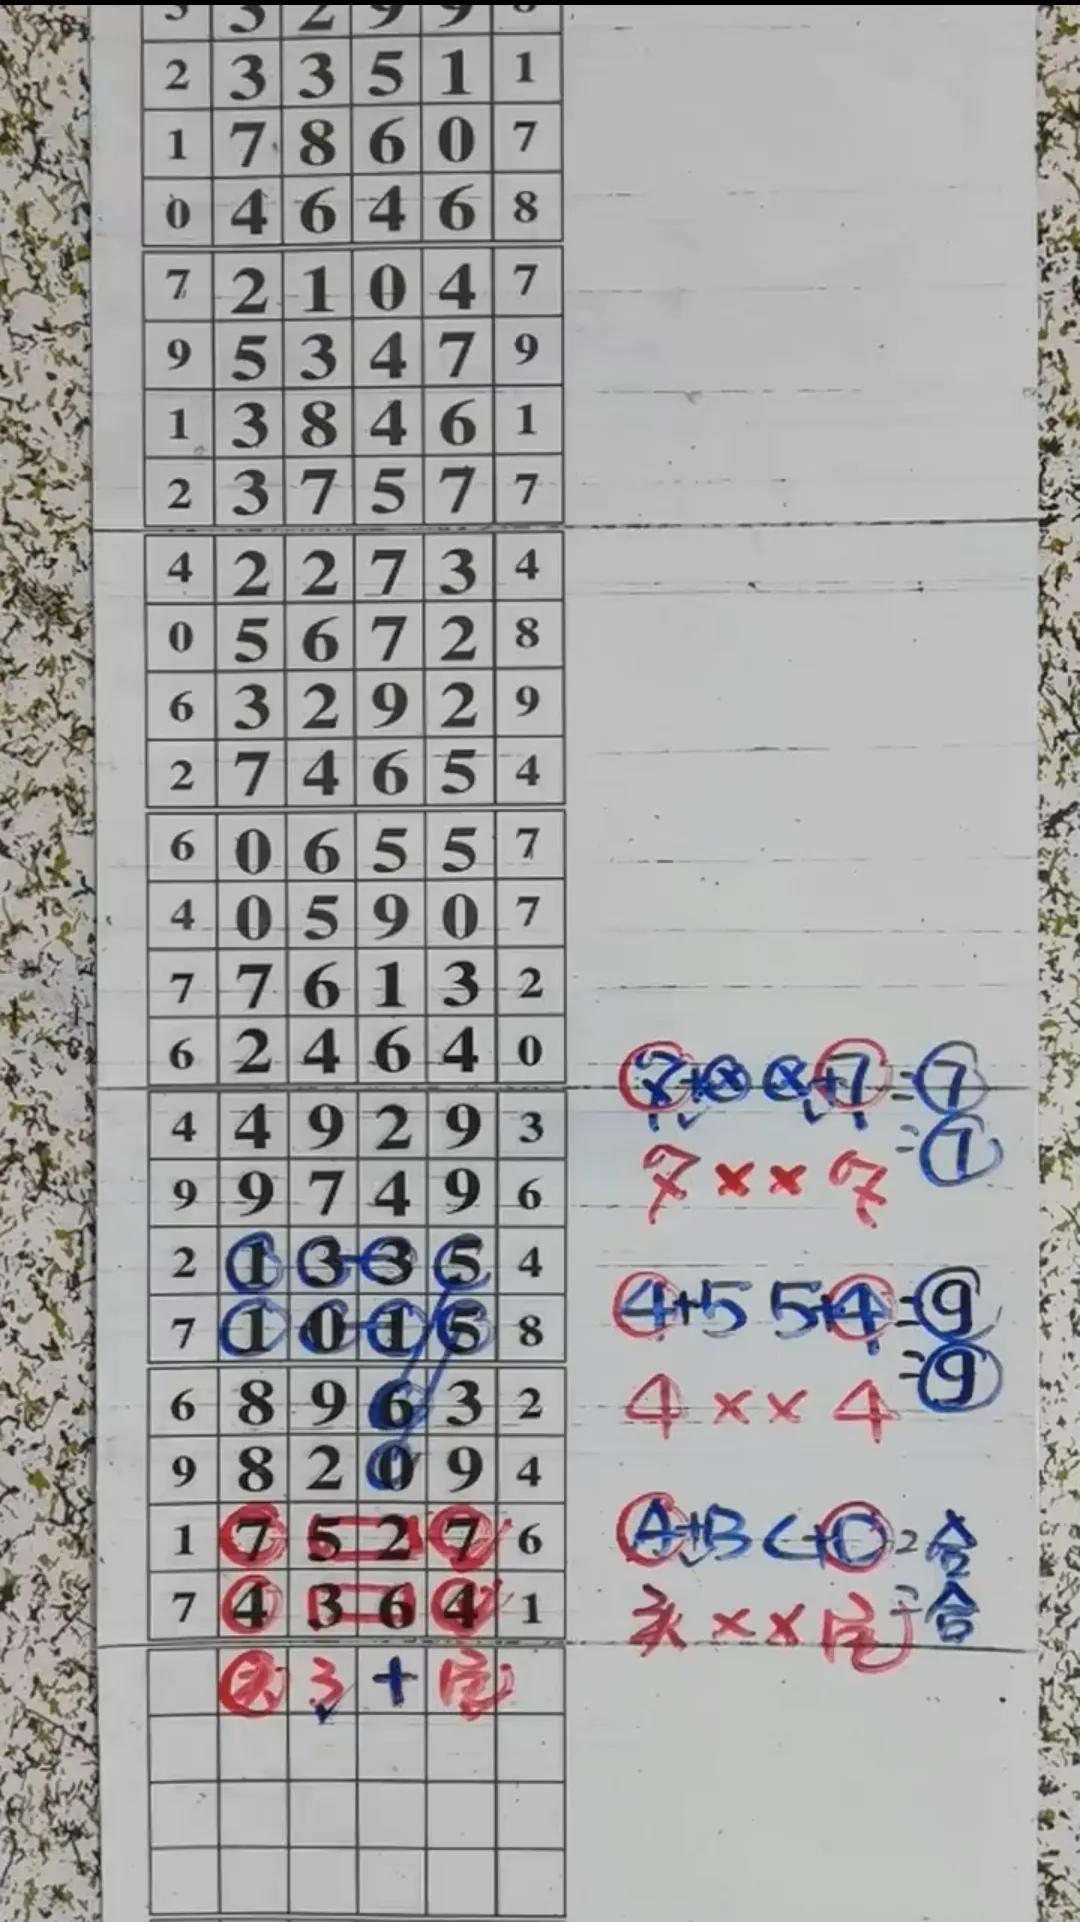 2 3 3 5 1 1
1 7 8 6 0 7
0 4 6 4 6 8
7 2 1 0 4 7
9 5 3 4 7 9
1 3 8 4 6 1
2 3 7 5 7 7
4 2 2 7 3 4
0 5 6 7 2 8
6 3 2 9 2 9
2 7 4 6 5 4
6 0 6 5 5 7
4 0 5 9 0 7
7 7 6 1 3 2
6 2 4 6 4 0
4 4 9 2 9 3
9 9 7 4 9 6
2 1 3 3 5 4
7 1 0 1 5 8
6 8 9 6 3 2
9 8 2 0 9 4
1 7 5 2 7 6
7 4 3 6 4 1
3 +
=7
=7
7 x x 7
4+5 5+4=9
=9
4 x x 4
A+B C+D=合
头 x x =合